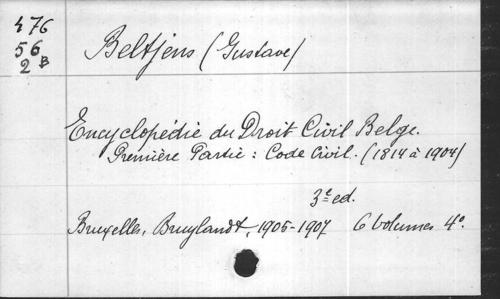 476
56
2 B
Beltjens (Gustave)
Encyclopédie du Droit Civil Belge.
Première Partie : Code Civil. (1814 à 1904)
3e ed.
Bruxelles, Bruylandt, 1905-1907 6 volumes 4o.